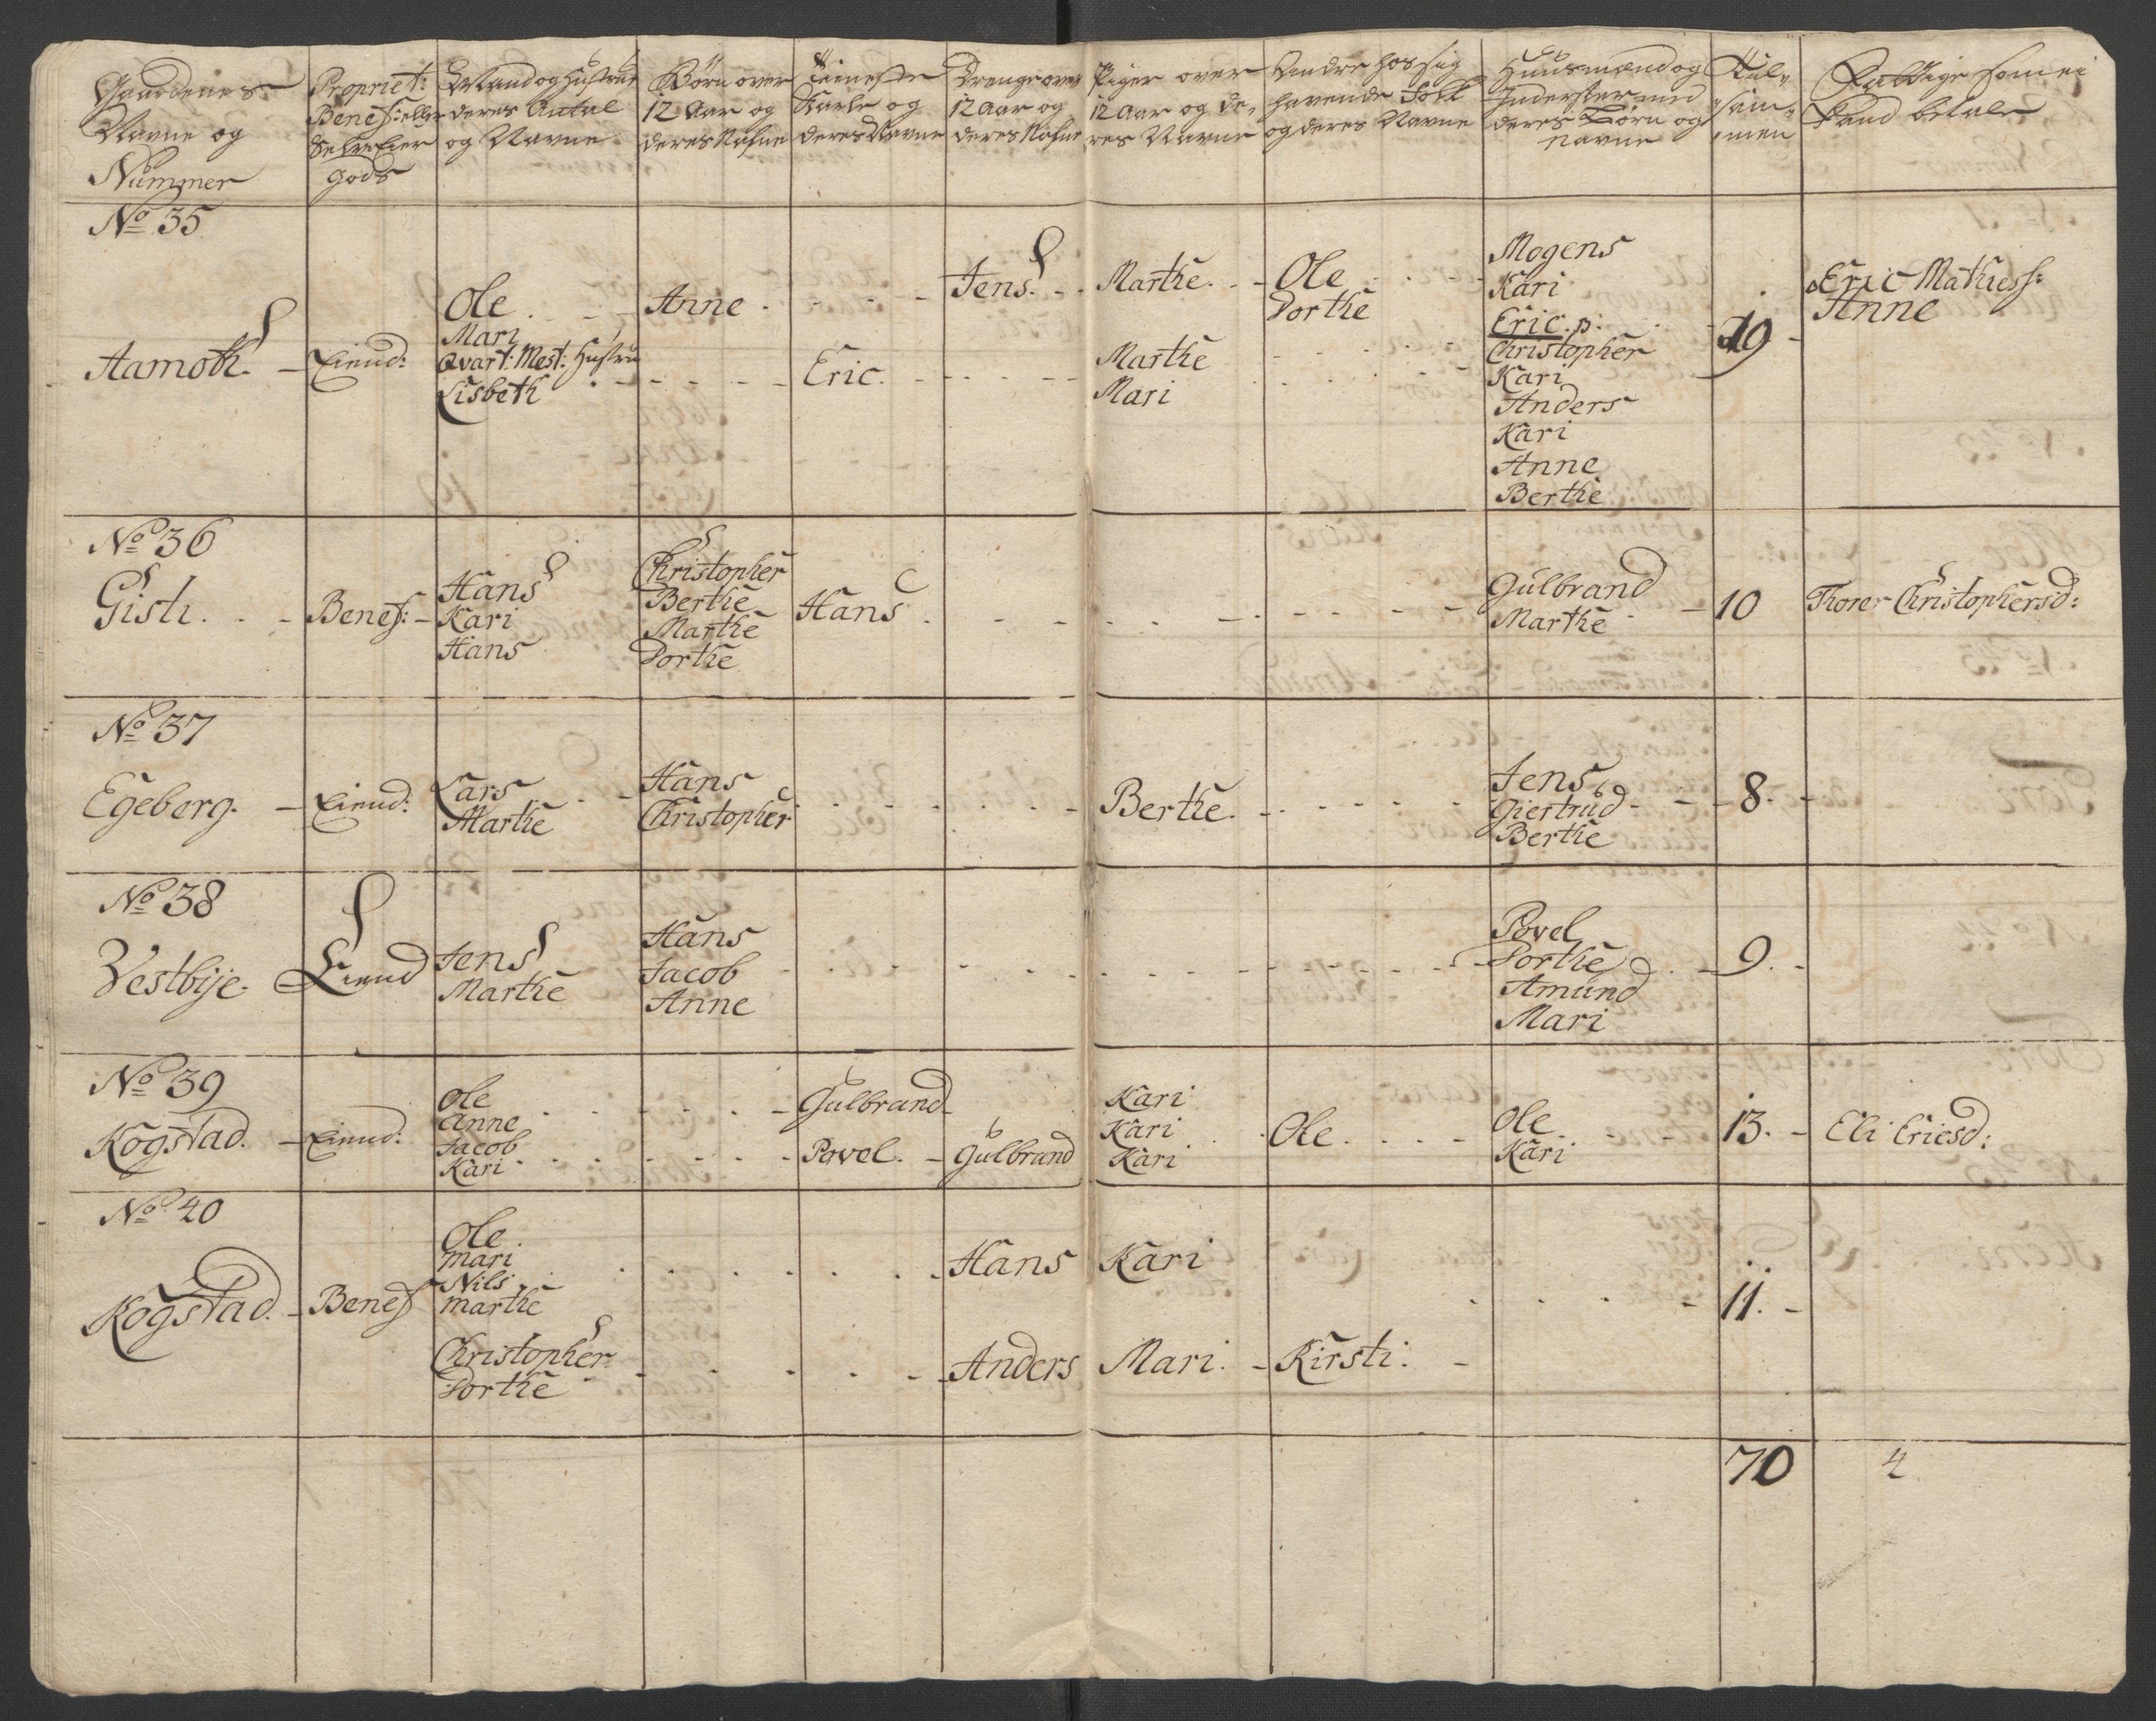 Gaardenes
Navne og
Nummer
Propriet:
Benef: eller
Selveeier
gods
Mand og Hustrue
deres Antal
og Navne
Børn over
12 Aar og
deres Nafne
Tieneste
Karle og
deres Navne
Drenge over
12 Aar og
deres Nafne
Piger over
12 Aar og de-
res Navne
Andre hos sig
havende Folk
og deres Navne
Huusmænd og
Inderster med
deres Børn og
Navne
Til-
sam-
men
Fattige som ei
kand betale
No 35
Aamoth. - Eiend:
Ole
Mari
Qvart: Mest: Hustru
Lisbeth
Anne
Eric.
Jens.
Marthe.
Marthe
Mari
Ole
Dorthe
Mogens
Kari
Eric. p:
Christopher
Kari
Anders
Kari
Anne
Berthe
19
Eric Mathiess:
Anne
No 36
Gisti. - Benef:
Hans
Kari
Hans
Christopher
Berthe
Marthe
Dorthe
Hans
Gulbrand
Marthe
10
Thorer Christophersd:
No 37
Egeberg. - Eiend:
Lars
Marthe
Hans
Christopher
Berthe.
Jens
Giertrud
Berthe
8.
No 38
Vestbije. Eiend
Jens
Marthe
Hans
Jacob
Anne
Povel
Dorthe
Amund
Mari
9.
No 39
Kogstad. - Eiend:
Ole
Anne
Jacob
Kari
Gulbrand
Povel.
Gulbrand
Kari
Kari
Kari
Ole.
Ole
Kari
13.
Eli Ericsd:
No 40
Kogstad. - Benef
Ole
Mari
Nils
Marthe
Christopher
Dorthe
Hans
Anders
Kari
Mari.
Kirsti.
11.
70
4